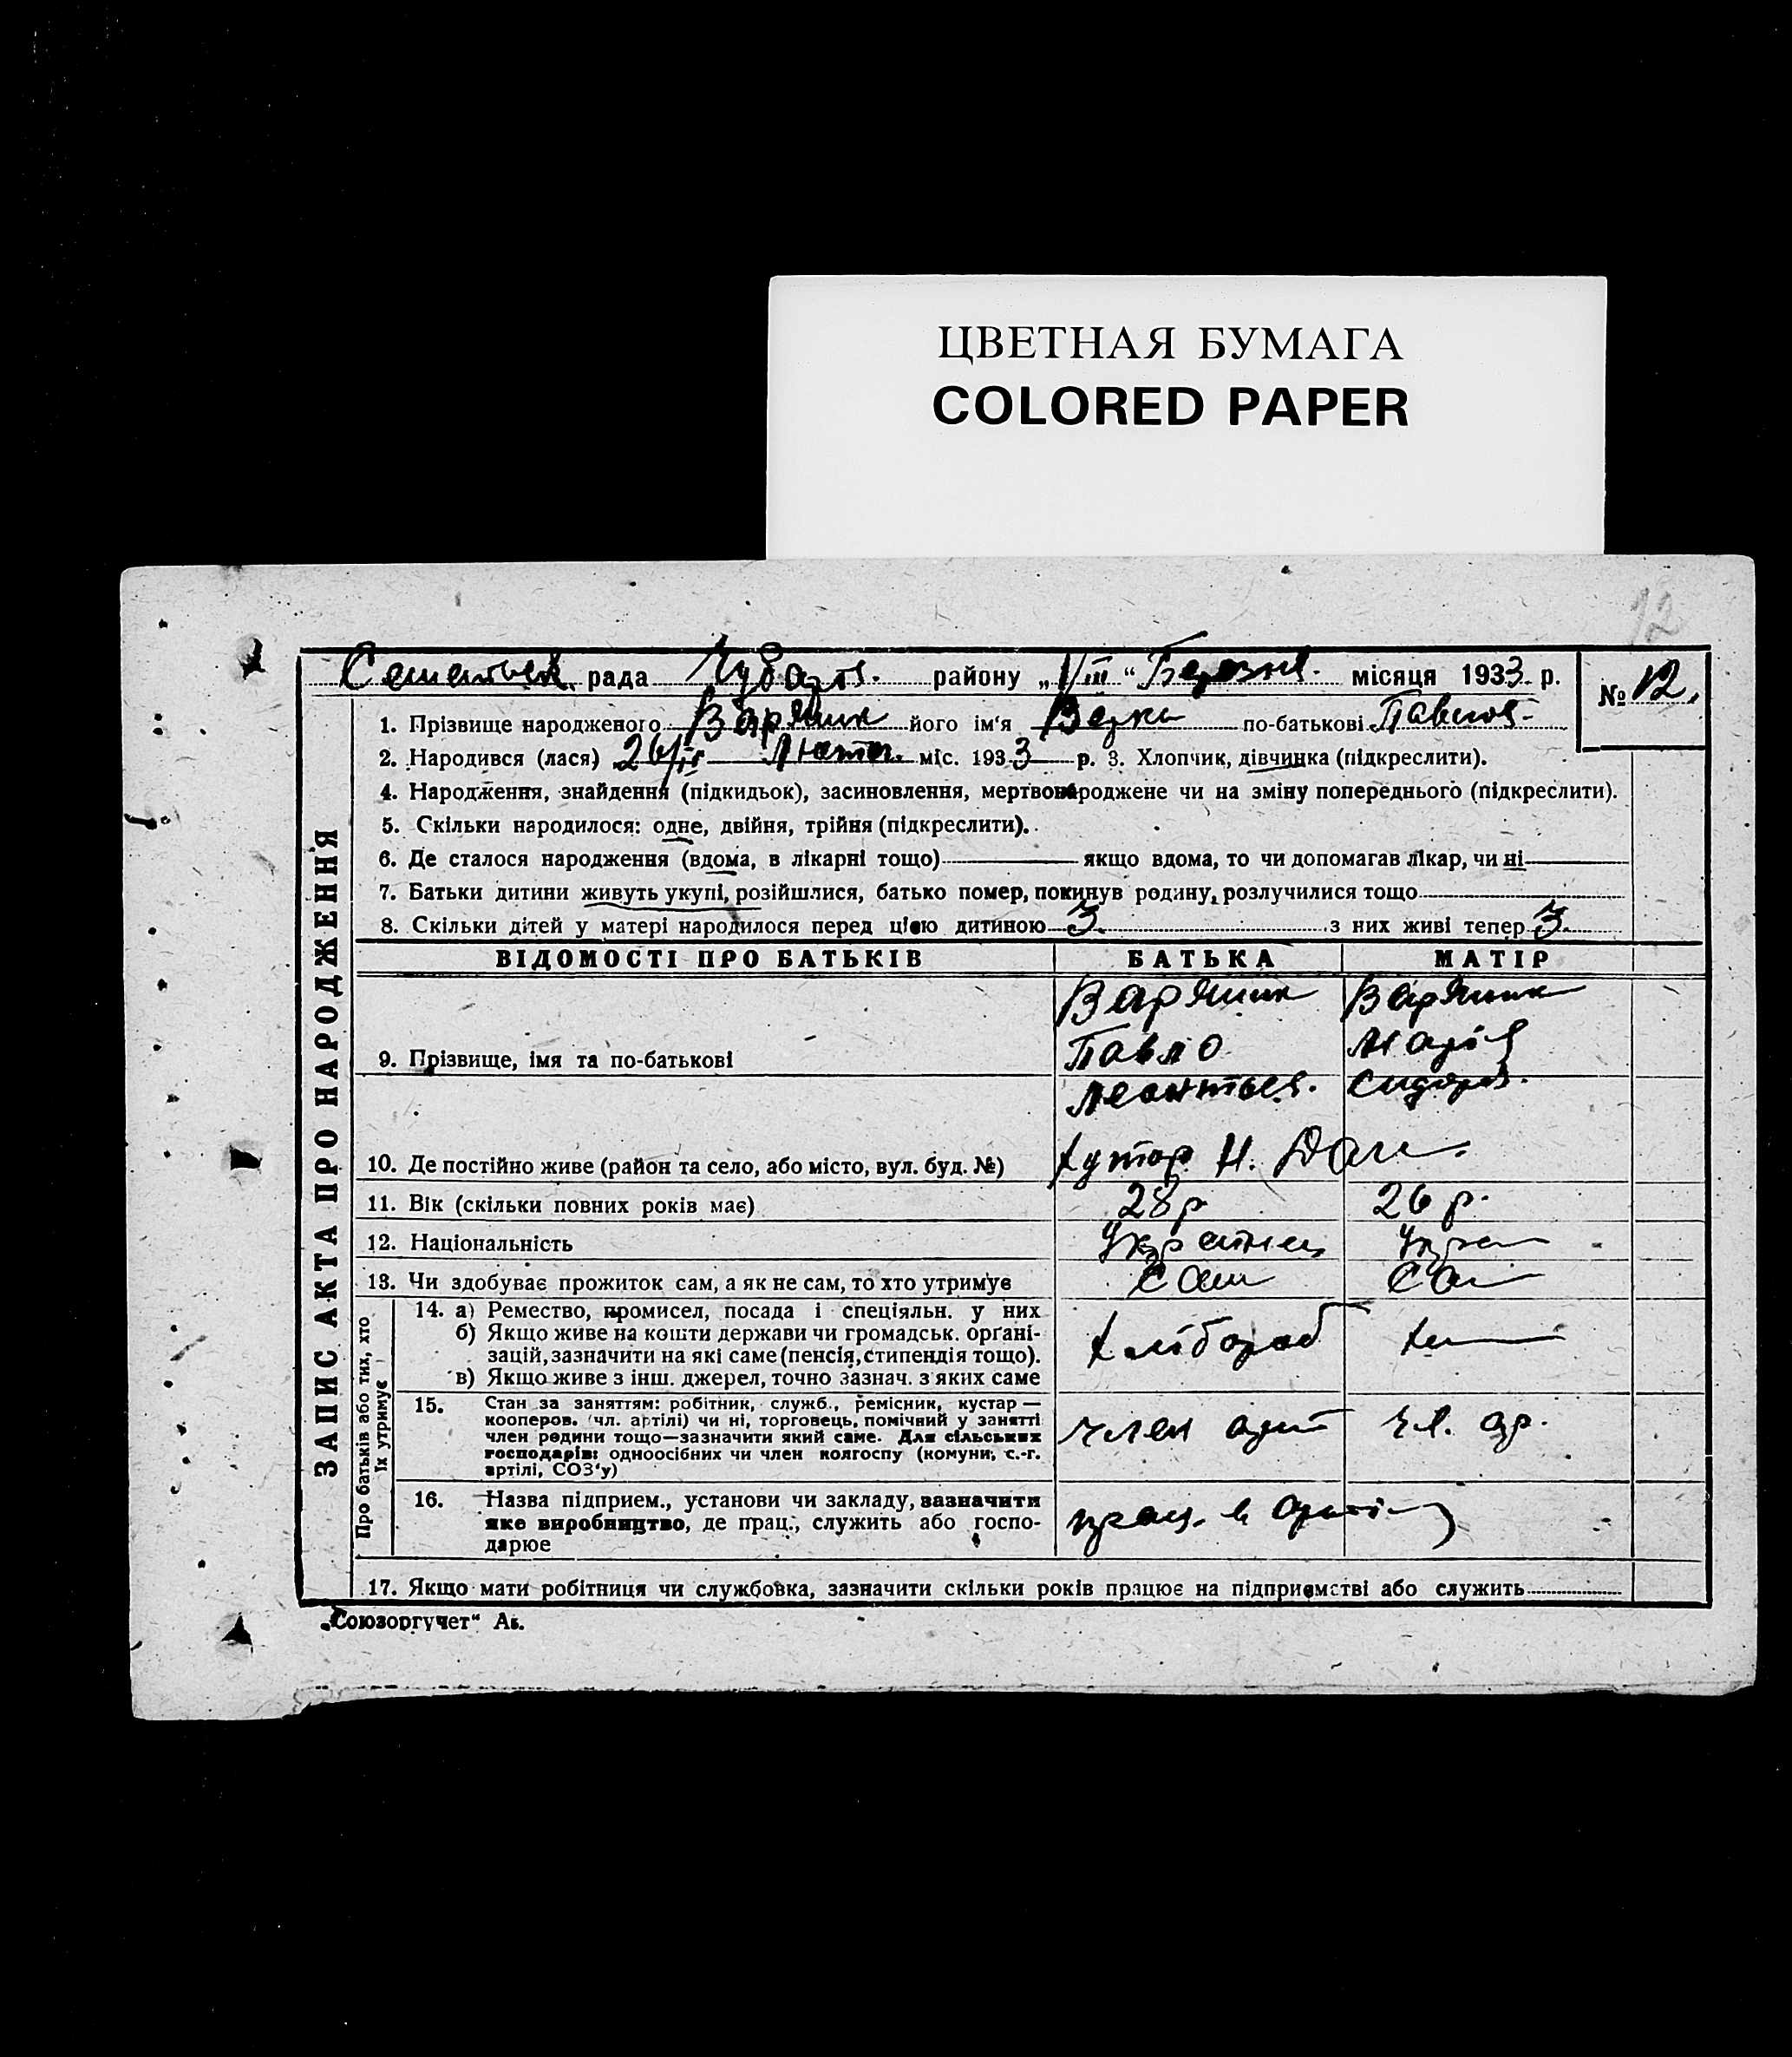 ЦВЕТНАЯ БУМАГА
COLORED PAPER
12
рада района „1/III“ Березня місяця 1933 р.
№ 12.
ЗАПИС АКТА ПРО НАРОДЖЕННЯ
1. Прізвище народженого його ім'я по-батькові
2. Народився (лася) 26/II Лютого міс. 1933 р. 3. Хлопчик, дівчинка (підкреслити).
4. Народження, знайдення (підкидьок), засиновлення, мертвонароджене чи на зміну попереднього (підкреслити).
5. Скільки народилося: одне, двійня, трійня (підкреслити).
6. Де сталося народження (вдома, в лікарні тощо) якщо вдома, то чи допомагав лікар, чи ні
7. Батьки дитини живуть укупі, розійшлися, батько помер, покинув родину, розлучилися тощо
8. Скільки дітей у матері народилося перед цією дитиною 3. з них живі тепер 3.
ВІДОМОСТІ ПРО БАТЬКІВ БАТЬКА МАТІР
9. Прізвище, імя та по-батькові
Павло Марія
10. Де постійно живе (район та село, або місто, вул. буд. №) хутор Н.
11. Вік (скільки повних років має) 28 р 26 р.
12. Національність Украинец Укра
13. Чи здобуває прожиток сам, а як не сам, то хто утримує сам са
Про батьків або тих, хто їх утримує
14. а) Ремество, промисел, посада і спеціяльн. у них
б) Якщо живе на кошти держави чи громадськ. органі-
зацій, зазначити на які саме (пенсія, стипендія тощо). хлібороб
в) Якщо живе з інш. джерел, точно зазнач. з яких саме
15. Стан за заняттям: робітник, служб., ремісник, кустар —
кооперов. (чл. артілі) чи ні, торговець, помічний у занятті
член родини тощо—зазначити який саме. Для сільських член арт чл. ар.
господарів: одноосібних чи член колгоспу (комуни, с.-г.
артілі, СОЗ'у)
16. Назва підприєм., установи чи закладу, зазначити
яке виробництво, де прац., служить або госпо-
дарює прац. в арті
17. Якщо мати робітниця чи службовка, зазначити скільки років працює на підприємстві або служить
„Союзоргучет“